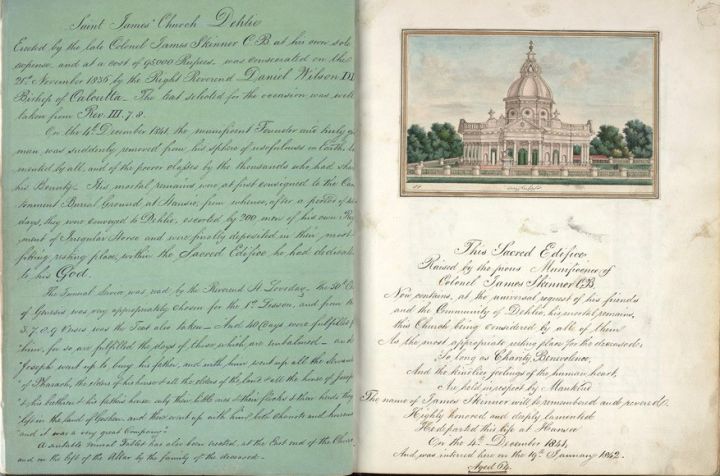 Saint James' Church Dehlie
Erected by the late Colonel James Skinner C.B. at his own sole
expense and at a cost of 95000 Rupees. was consecrated on the
21st November 1836, by the Right Reverend Daniel Wilson DD
Bishop of Calcutta. The text selected for the occasion was well
taken from Rev. III. 7. 8.
On the 4th December 1841, the munificent Founder and truly
man, was suddenly removed from his sphere of usefulness on Earth,
mented by all, and of the poorer classes by the thousands who had
his Bounty. His mortal remains were at first consigned to the Can
tonment Burial Ground at Hansie, from whence, after a period of
days, they were conveyed to Dehlie, escorted by 200 men of his own
ment of Irregular Horse and were finally deposited in their most
fitting resting place, within the Sacred Edifice he had
to his God.
The Funeral Service was read by the Reverend the 50th
of Genesis was very appropriately chosen for the 1st Lesson, and from
3. 7. 9. Verses was the Text also taken — And 40 Days were fulfilled
him, for so are fulfilled the days of those which are embalmed — and
Joseph went up to bury his father, and with him went up all the servants
of Pharaoh, the elders of his house & all the elders of the land & all the house of
& his brethren & his father's house: only their little ones & their flocks & their herds they
left in the land of Goshen. and there went up with him both chariots and horsemen
and it was a very great Company."
A suitable mural Tablet has also been erected, at the East end of the
and on the left of the Altar by the family of the deceased —
This Sacred Edifice
Raised by the pious Munificence of
Colonel James Skinner C.B.
Now contains, at the universal request of his friends
and the Community of Dehlie, his mortal remains,
this Church being considered by all of them
As the most appropriate resting place for the deceased
So long as Charity, Benevolence,
And the kindlier feelings of the human heart,
Are held in respect by Mankind
The name of James Skinner will be remembered and revered
Highly honored and deeply lamented
He departed this life at Hansie
On the 4th December 1841,
And was interred here on the 19th January 1842.
Aged 64.